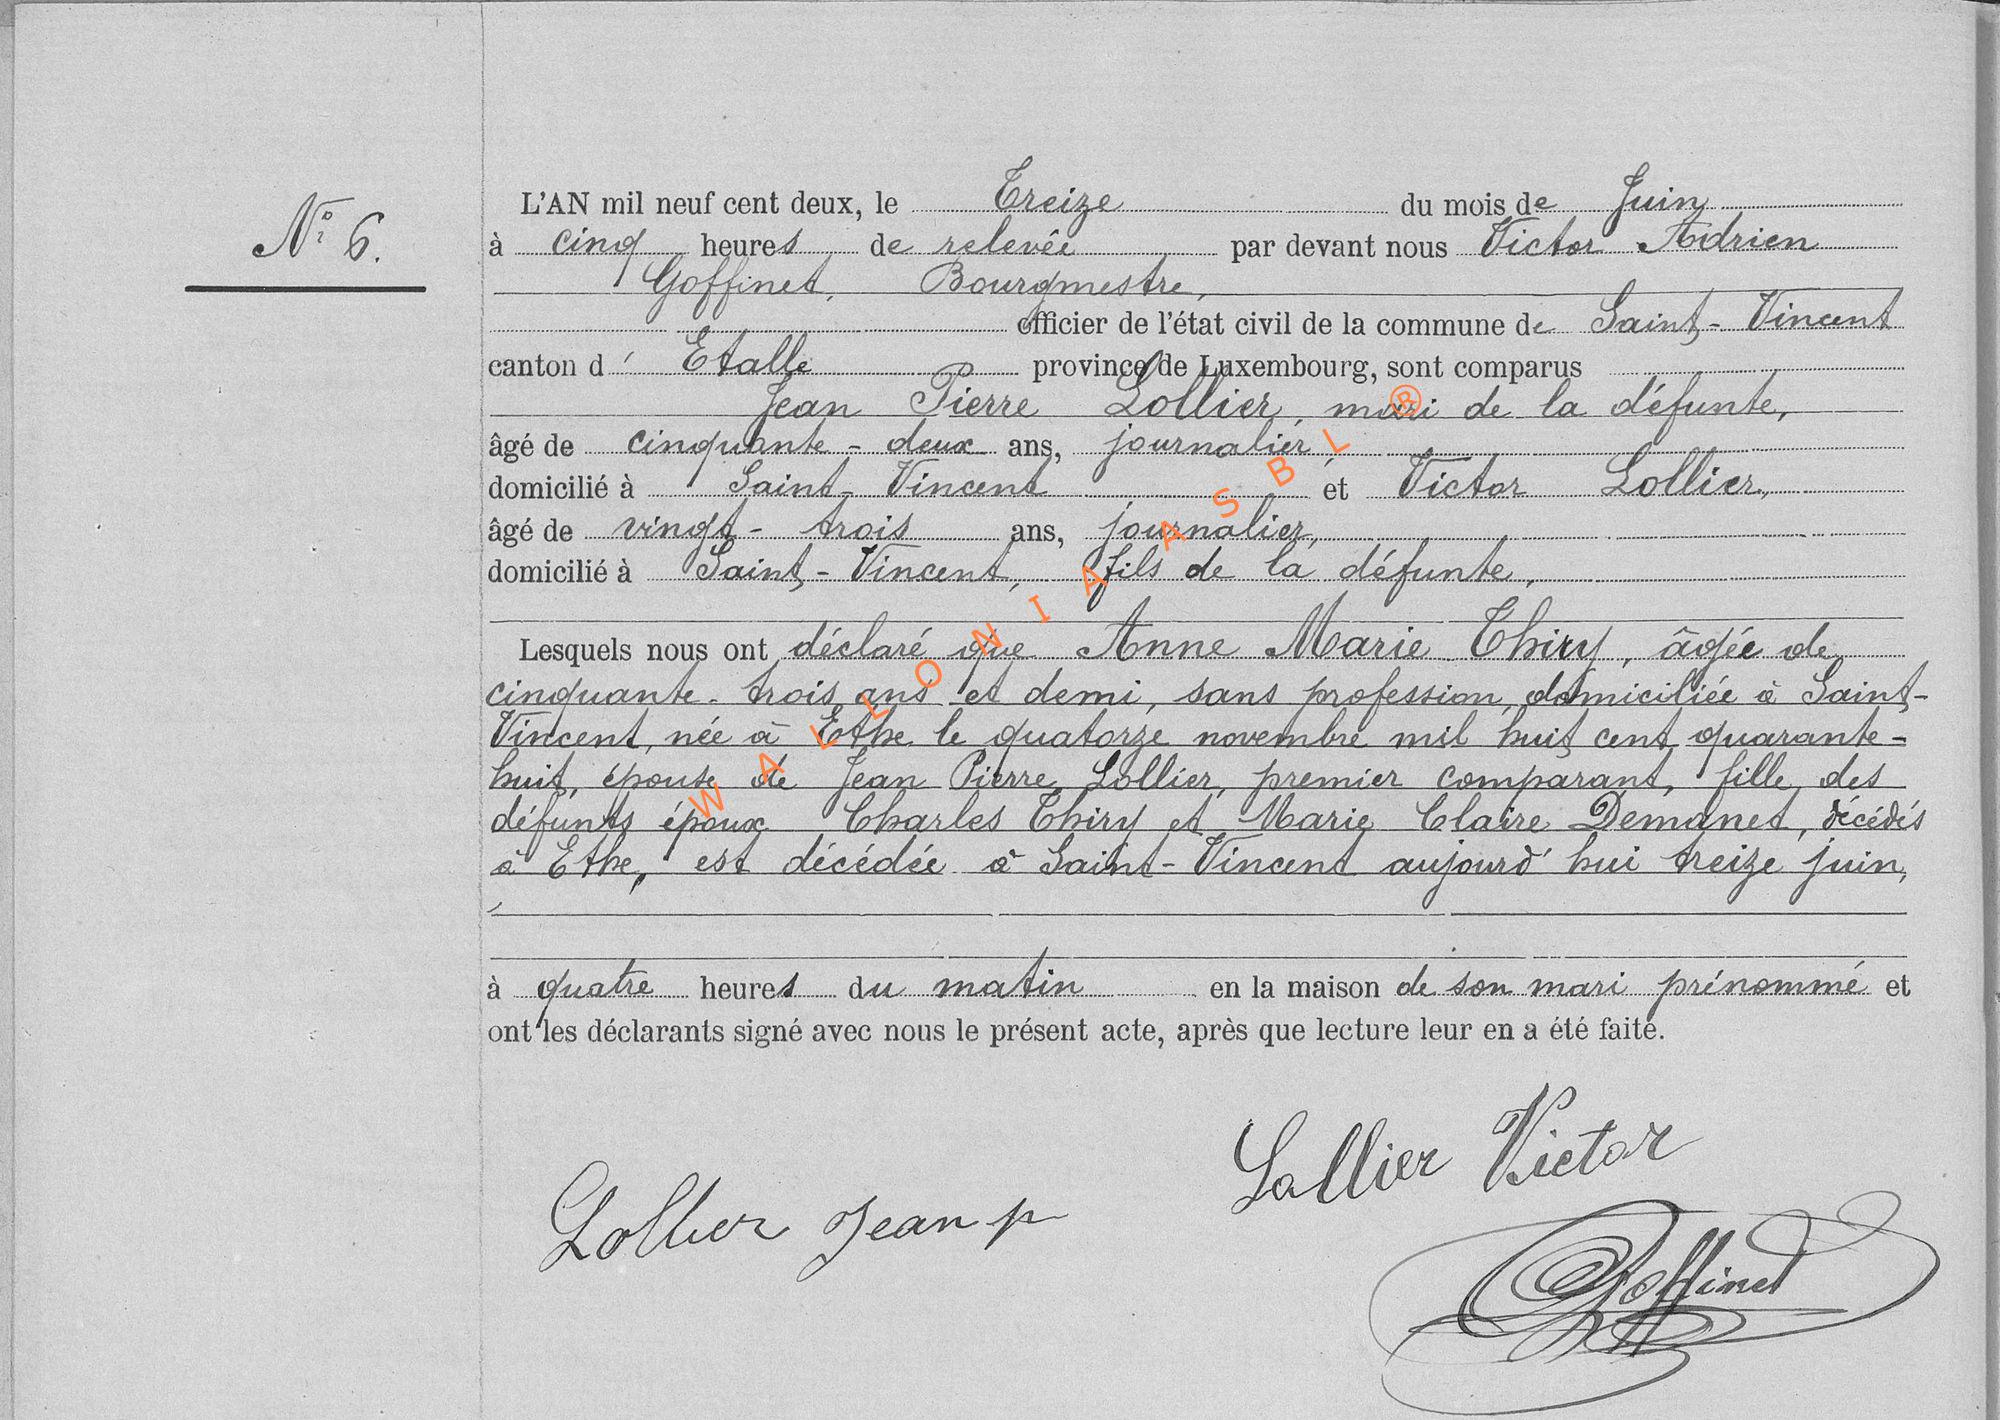 N° 6.
L'AN mil neuf cent deux, le Treize du mois de Juin
à cinq heures de relevée par devant nous Victor Adrien
Goffinet, Bourgmestre,
officier de l'état civil de la commune de Saint-Vincent
canton d' Etalle province de Luxembourg, sont comparus
Jean Pierre Lollier, mari de la défunte,
âgé de cinquante-deux ans, journalier,
domicilié à Saint-Vincent et Victor Lollier,
âgé de vingt-trois ans, journalier,
domicilié à Saint-Vincent, fils de la défunte,
Lesquels nous ont déclaré que Anne Marie Thiry, âgée de
cinquante-trois ans et demi, sans profession, domiciliée à Saint-
Vincent, née à Ethe le quatorze novembre mil huit cent quarante-
huit, épouse de Jean Pierre Lollier, premier comparant, fille des
défunts époux Charles Thiry et Marie Claire Demanet, décédés
à Ethe, est décédée à Saint-Vincent aujourd'hui treize juin,
à quatre heures du matin en la maison de son mari prénommé et
ont les déclarants signé avec nous le présent acte, après que lecture leur en a été faite.
Lollier Victor
Lollier Jean p
Goffinet
WALLONIA ASBL ®